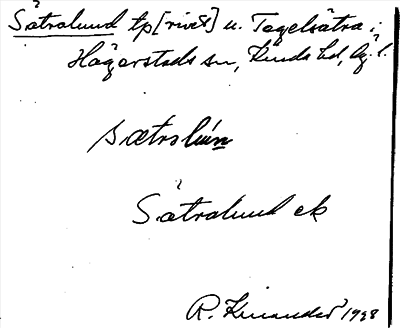 Sätralund tp [rivet] u. Tegelsätra i
Hägerstads sn, Kinda hd, Ög. l.
sætralún
Sätralund ek
R. Kinander 1928